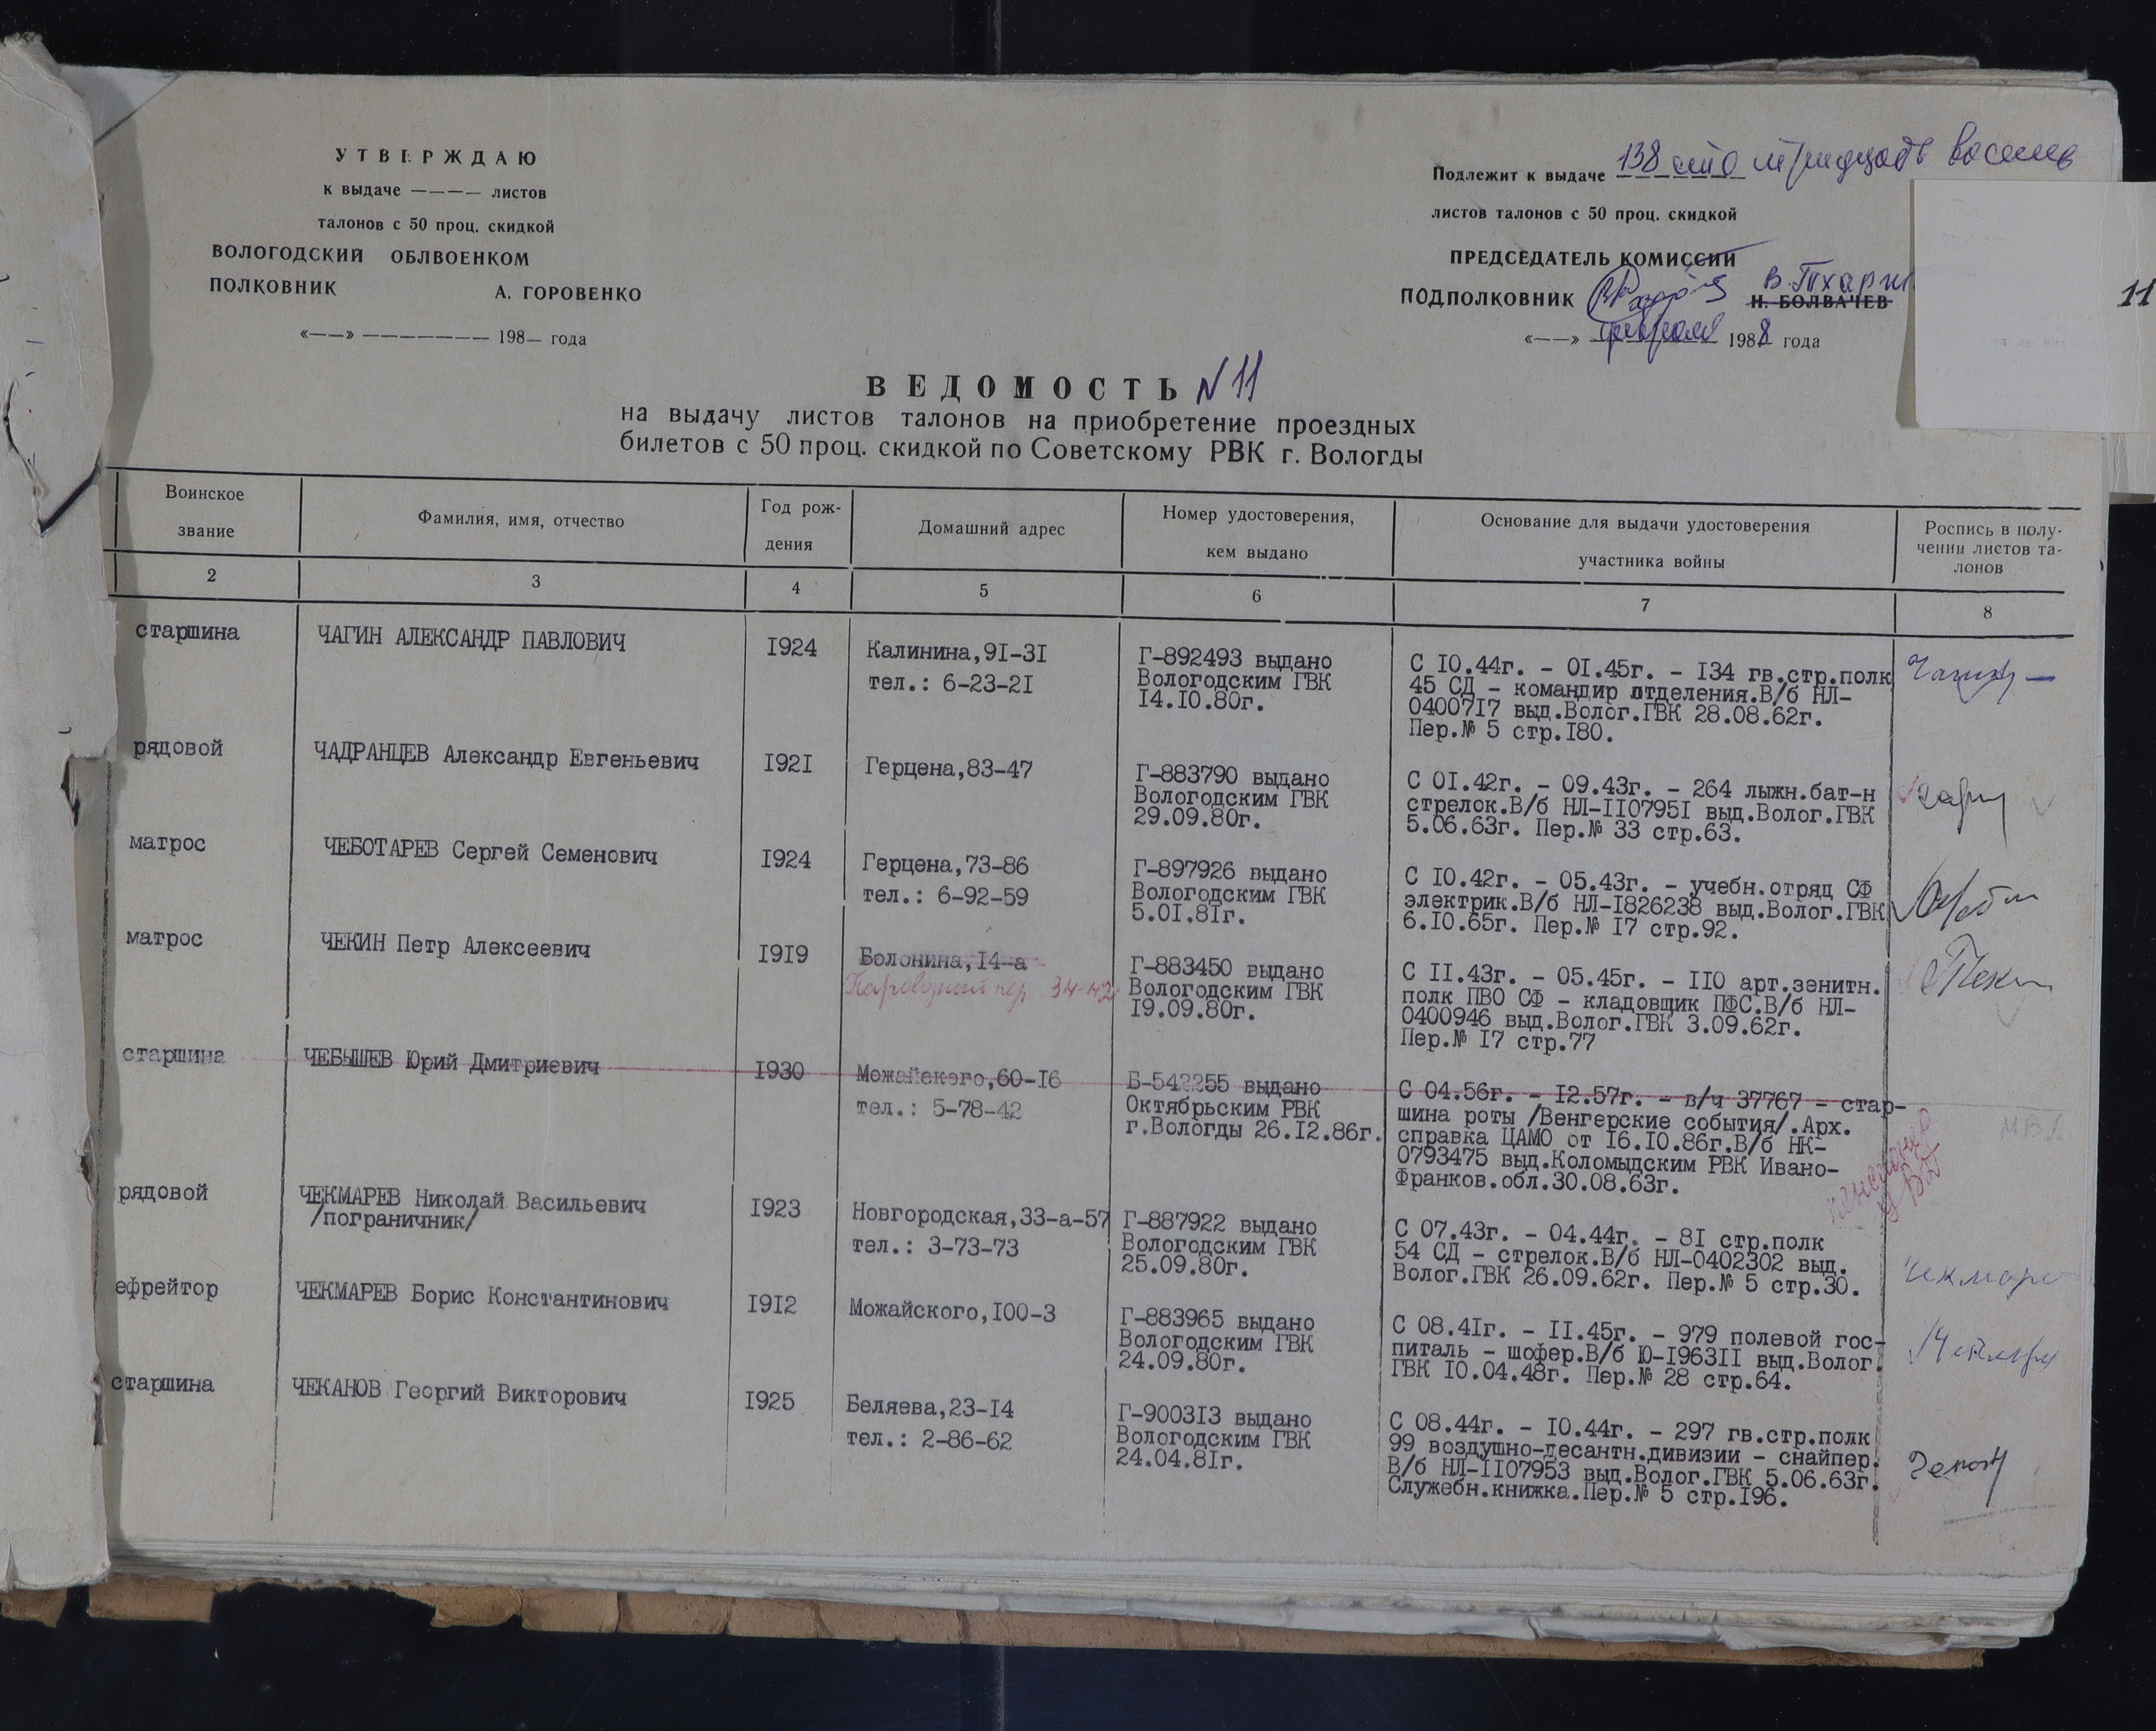 УТВЕРЖДАЮ
к выдаче ———— листов
талонов с 50 проц. скидкой
ВОЛОГОДСКИЙ ОБЛВОЕНКОМ
ПОЛКОВНИК А. ГОРОВЕНКО
«——» ——————— 198— года
Подлежит к выдаче 138 сто тридцать восемь
листов талонов с 50 проц. скидкой
ПРЕДСЕДАТЕЛЬ КОМИССИИ
ПОДПОЛКОВНИК Н. БОЛВАЧЕВ
«——» февраля 1988 года
11
ВЕДОМОСТЬ N 11
на выдачу листов талонов на приобретение проездных
билетов с 50 проц. скидкой по Советскому РВК г. Вологды
Воинское звание
Фамилия, имя, отчество
Год рож-
дения
Домашний адрес
Номер удостоверения,
кем выдано
Основание для выдачи удостоверения
участника войны
Роспись в полу-
чении листов та-
лонов
2 3 4 5 6 7 8
старшина
ЧАГИН АЛЕКСАНДР ПАВЛОВИЧ
1924
Калинина,91-31
тел.: 6-23-21
Г-892493 выдано
Вологодским ГВК
14.10.80г.
С 10.44г. - 01.45г. - 134 гв.стр.полк
45 СД - командир отделения.В/б НЛ-
0400717 выд.Волог.ГВК 28.08.62г.
Пер.№ 5 стр.180.
рядовой
ЧАДРАНЦЕВ Александр Евгеньевич
1921
Герцена,83-47
Г-883790 выдано
Вологодским ГВК
29.09.80г.
С 01.42г. - 09.43г. - 264 лыжн.бат-н
стрелок.В/б НЛ-1107951 выд.Волог.ГВК
5.06.63г. Пер.№ 33 стр.63.
матрос
ЧЕБОТАРЕВ Сергей Семенович
1924
Герцена,73-86
тел.: 6-92-59
Г-897926 выдано
Вологодским ГВК
5.01.81г.
С 10.42г. - 05.43г. - учебн.отряд СФ
электрик.В/б НЛ-1826238 выд.Волог.ГВК
6.10.65г. Пер.№ 17 стр.92.
матрос
ЧЕКИН Петр Алексеевич
1919
Болонина,14-а
пер. 34-42
Г-883450 выдано
Вологодским ГВК
19.09.80г.
С 11.43г. - 05.45г. - 110 арт.зенитн.
полк ПВО СФ - кладовщик ПФС.В/б НЛ-
0400946 выд.Волог.ГВК 3.09.62г.
Пер.№ 17 стр.77
старшина
ЧЕБЫШЕВ Юрий Дмитриевич
1930
Можайского,60-16
тел.: 5-78-42
Б-542255 выдано
Октябрьским РВК
г.Вологды 26.12.86г.
С 04.56г. - 12.57г. - в/ч 37767 - стар-
шина роты /Венгерские события/.Арх.
справка ЦАМО от 16.10.86г.В/б НК-
0793475 выд.Коломыдским РВК Ивано-
Франков.обл.30.08.63г.
рядовой
ЧЕКМАРЕВ Николай Васильевич
/пограничник/
1923
Новгородская,33-а-57
тел.: 3-73-73
Г-887922 выдано
Вологодским ГВК
25.09.80г.
С 07.43г. - 04.44г. - 81 стр.полк
54 СД - стрелок.В/б НЛ-0402302 выд.
Волог.ГВК 26.09.62г. Пер.№ 5 стр.30.
ефрейтор
ЧЕКМАРЕВ Борис Константинович
1912
Можайского,100-3
Г-883965 выдано
Вологодским ГВК
24.09.80г.
С 08.41г. - 11.45г. - 979 полевой гос-
питаль - шофер.В/б Ю-196311 выд.Волог.
ГВК 10.04.48г. Пер.№ 28 стр.64.
старшина
ЧЕКАНОВ Георгий Викторович
1925
Беляева,23-14
тел.: 2-86-62
Г-900313 выдано
Вологодским ГВК
24.04.81г.
С 08.44г. - 10.44г. - 297 гв.стр.полк
99 воздушно-десантн.дивизии - снайпер.
В/б НЛ-1107953 выд.Волог.ГВК 5.06.63г.
Служебн.книжка.Пер.№ 5 стр.196.